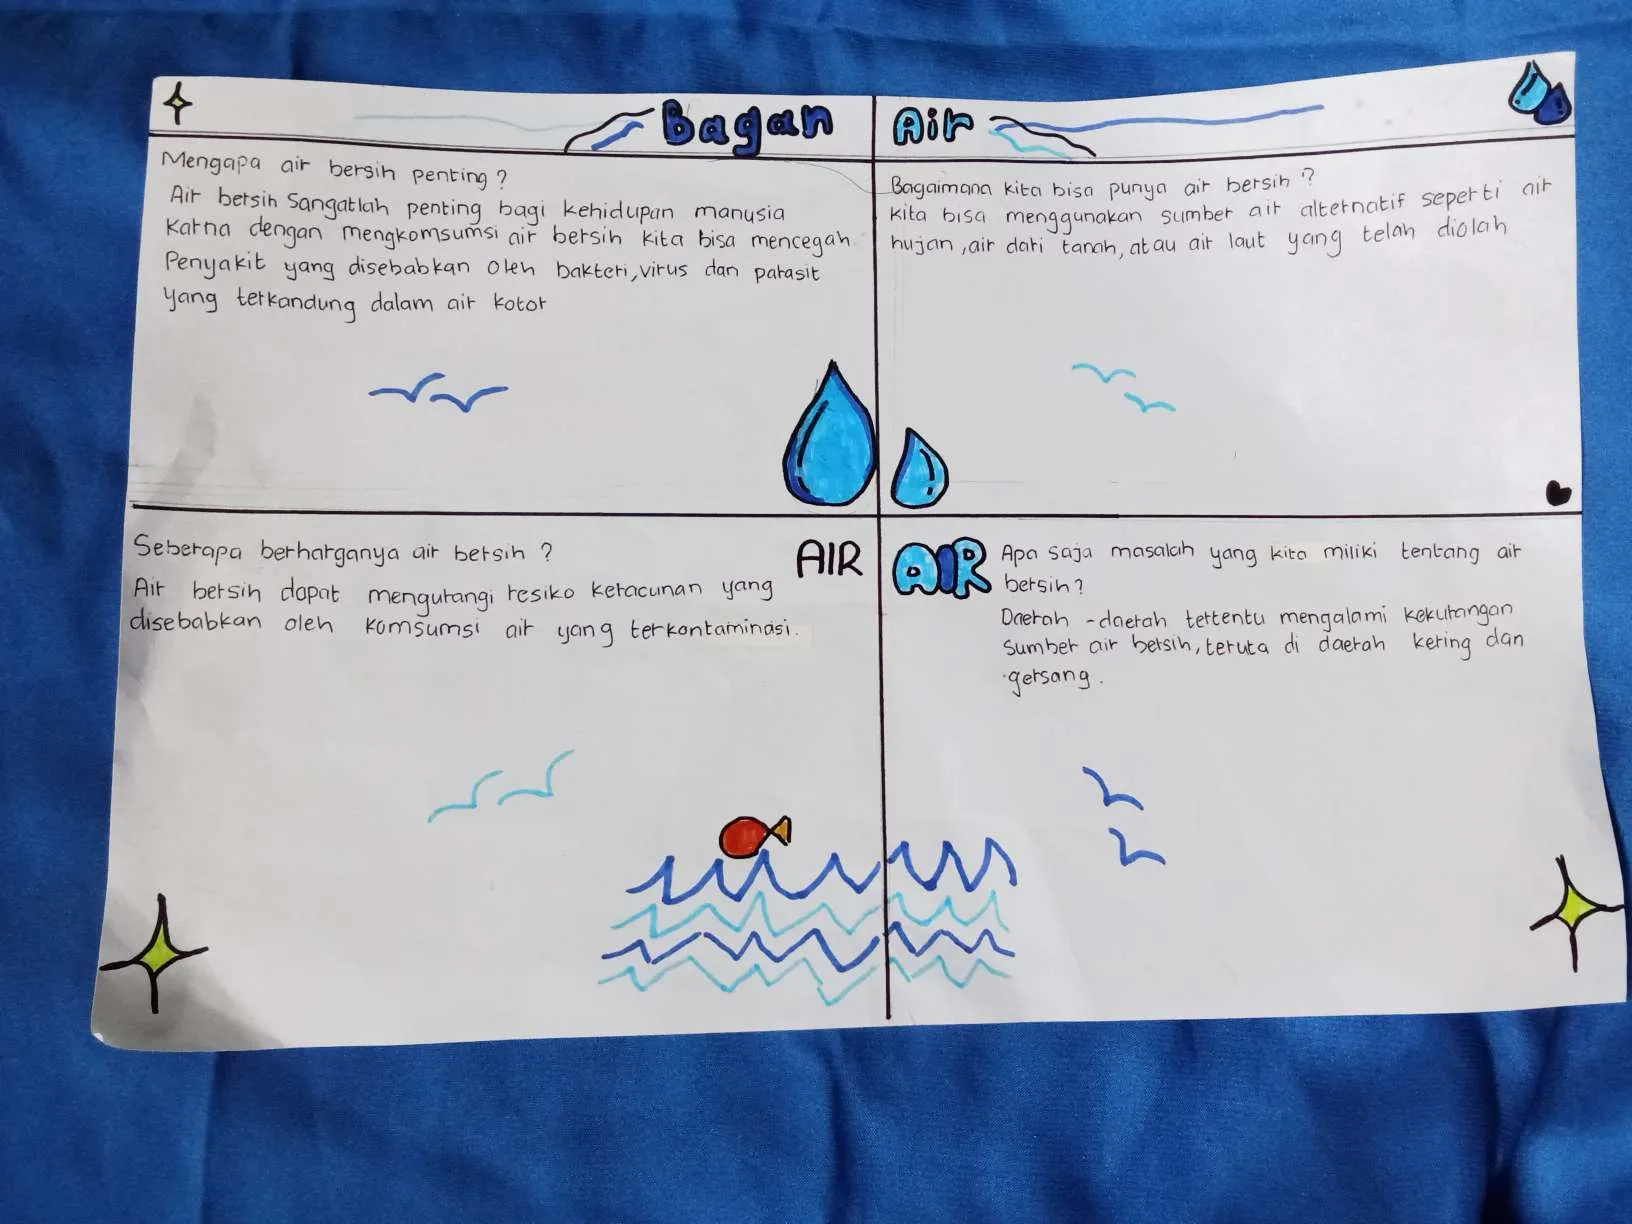 Bagan Air
Mengapa air bersih penting?
Air bersih sangatlah penting bagi kehidupan manusia
karna dengan mengkomsumsi air bersih kita bisa mencegah
Penyakit yang disebabkan oleh bakteri, virus dan parasit
yang terkandung dalam air kotor
Bagaimana kita bisa punya air bersih?
kita bisa menggunakan sumber air alternatif seperti air
hujan, air dari tanah, atau air laut yang telah diolah
Seberapa berharganya air bersih?
Air bersih dapat mengurangi resiko keracunan yang
disebabkan oleh komsumsi air yang terkontaminasi.
AIR
AIR
Apa saja masalah yang kita miliki tentang air
bersih?
Daerah-daerah tertentu mengalami kekurangan
sumber air bersih, teruta di daerah kering dan
gersang.